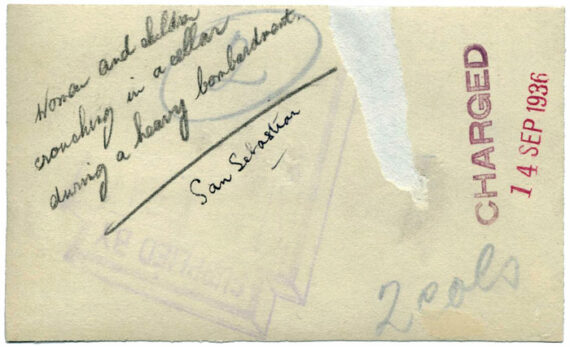 Women and children
crouching in a cellar
during a heavy bombardment.
San Sebastian
2
CHARGED
14 SEP 1936
2 cols